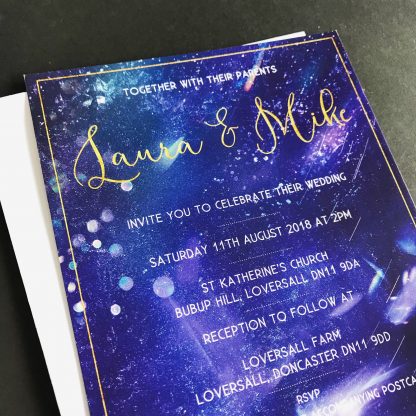 TOGETHER WITH THEIR PARENTS
Laura & Mike
INVITE YOU TO CELEBRATE THEIR WEDDING
SATURDAY 11TH AUGUST 2018 AT 2PM
ST KATHERINE'S CHURCH
BUBUP HILL, LOVERSALL DN11 9DA
RECEPTION TO FOLLOW AT
LOVERSALL FARM
LOVERSALL, DONCASTER DN11 9DD
RSVP
POSTCA